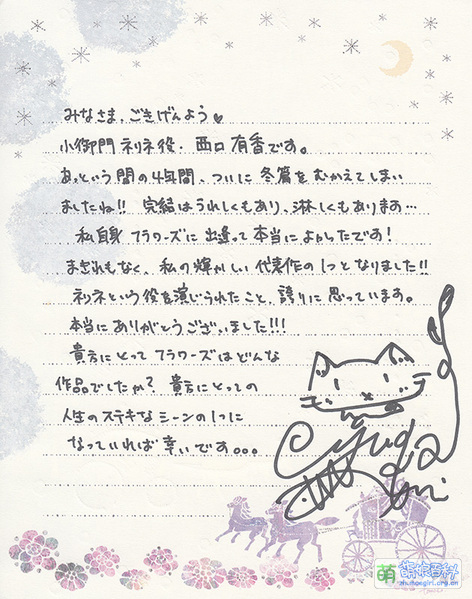 みなさま、ごきげんよう♥
小御門 ネリネ役、西口 有香です。
あっという間の4年間、ついに 冬篇を むかえてしまい
ましたね!! 完結はうれしくもあり、淋しくもあります…
私自身 フラワーズに 出逢って本当に よかったです!
まぎれもなく、私の輝かしい 代表作の1つと なりました!!
ネリネという役を演じられたこと、誇りに 思っています。
本当に ありがとうございました!!!
貴方にとって フラワーズは どんな
作品でしたか? 貴方にとっての
人生のステキなシーンの1つに
なっていれば 幸いです。。。
萌 萌娘百科
zh.moegirl.org.cn